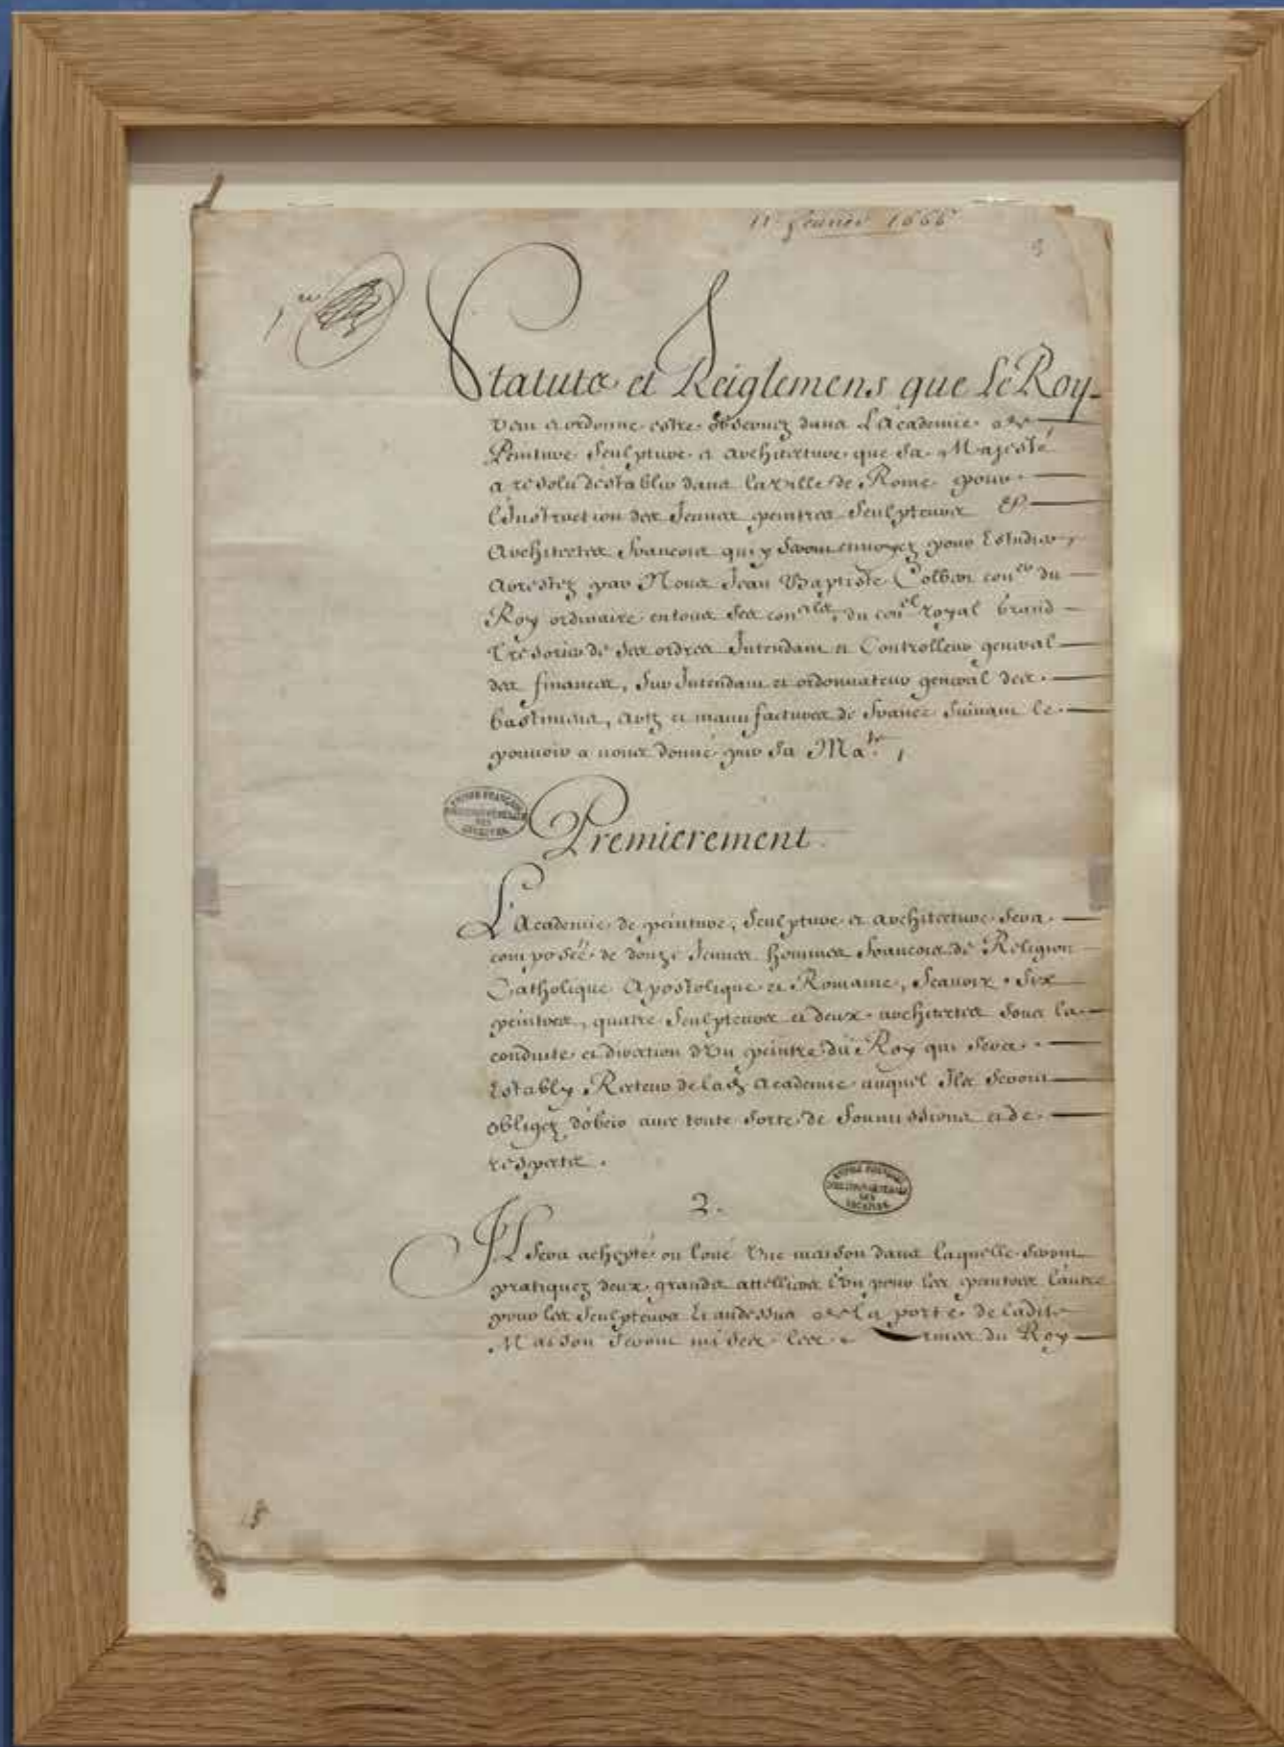 11 feurier 1666
3
1re
Statuts et Reiglemens que le Roy
veut et ordonne estre obseruez dans L'Academie de
Peinture Sculpture et Architecture que sa Majesté
a resolu d'establir dans la ville de Rome pour
l'Instruction des Jeunes peintres Sculpteurs et
Architectes francois qui y seront enuoyez pour Estudier,
Arrestez par Nous Jean Baptiste Colbert coner du
Roy ordinaire en tous ses conseils, du conel royal Grand
Tresorier de ses ordres Intendant et Controlleur general
des finances, Sur Intendant et ordonnateur general des
bastimens, arts et manufactures de france suiuant le
pouuoir a nous donné par sa Mate,
EMPIRE FRANÇAIS
DIRECTION GÉNÉRALE
DES
ARCHIVES
Premierement
L'Academie de peinture, Sculpture et architecture sera
composée de douze Jeunes hommes francois de Religion
Catholique Apostolique et Romaine, Scauoir six
peintres, quatre Sculpteurs et deux architectes sous la
conduite et direction d'Vn peintre du Roy qui sera
Estably Recteur de lad. Academie auquel Ils seront
obligez d'obeir auec toute sorte de soumissions et de
respects.
EMPIRE FRANÇAIS
DIRECTION GÉNÉRALE
DES
ARCHIVES
2.
Il sera achepté ou loué Vne maison dans laquelle seront
pratiquez deux grands attelliers l'Vn pour les peintres l'autre
pour les Sculpteurs Et audessus de la porte de ladite
Maison seront mises les Armes du Roy